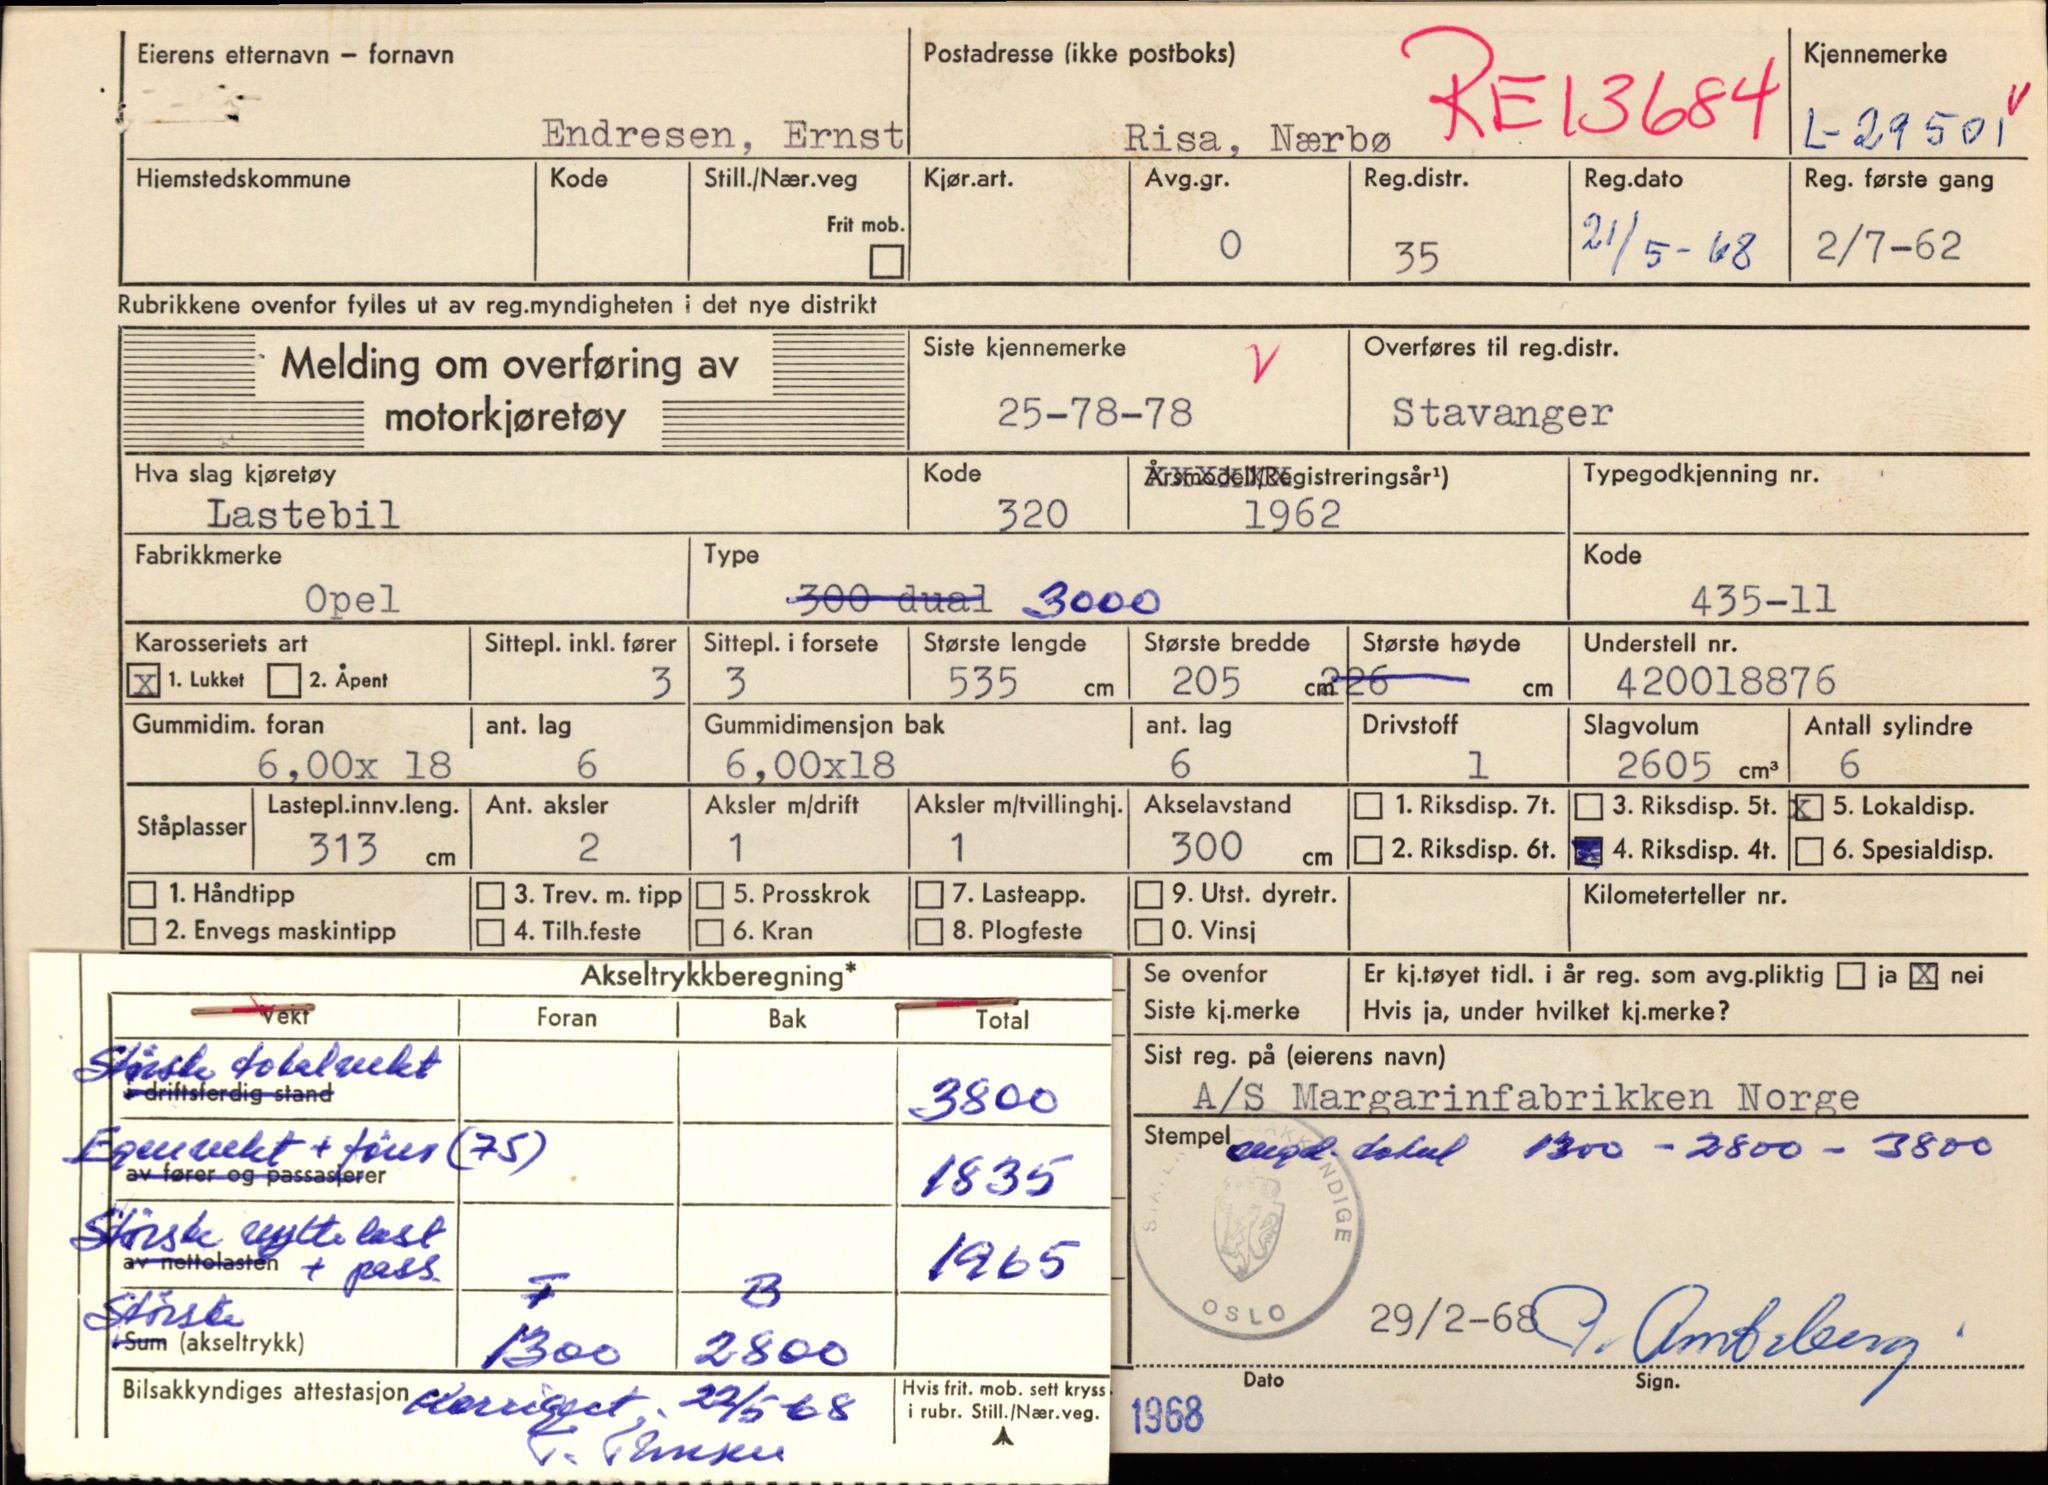 Eierens etternavn – fornavn
Endresen, Ernst
Postadresse (ikke postboks)
Risa, Nærbø
RE13684
Kjennemerke
L-29501 V
Hjemstedskommune
Kode
Still./Nær.veg
Frit mob.
Kjør.art.
Avg.gr.
0
Reg.distr.
35
Reg.dato
21/5-68
Reg. første gang
2/7-62
Rubrikkene ovenfor fylles ut av reg.myndigheten i det nye distrikt
Melding om overføring av
motorkjøretøy
Siste kjennemerke
V
25-78-78
Overføres til reg.distr.
Stavanger
Hva slag kjøretøy
Lastebil
Kode
320
Årsmodell/Registreringsår¹)
1962
Typegodkjenning nr.
Fabrikkmerke
Opel
Type
300 dual 3000
Kode
435-11
Karosseriets art
X 1. Lukket 2. Åpent
Sittepl. inkl. fører
3
Sittepl. i forsete
3
Største lengde
535 cm
Største bredde
205 cm
Største høyde
226 cm
Understell nr.
420018876
Gummidim. foran
6,00x 18
ant. lag
6
Gummidimensjon bak
6,00x18
ant. lag
6
Drivstoff
1
Slagvolum
2605 cm³
Antall sylindre
6
Ståplasser
Lastepl.innv.leng.
313 cm
Ant. aksler
2
Aksler m/drift
1
Aksler m/tvillinghj.
1
Akselavstand
300 cm
1. Riksdisp. 7t.
2. Riksdisp. 6t.
3. Riksdisp. 5t.
4. Riksdisp. 4t.
X 5. Lokaldisp.
6. Spesialdisp.
1. Håndtipp
2. Envegs maskintipp
3. Trev. m. tipp
4. Tilh.feste
5. Prosskrok
6. Kran
7. Lasteapp.
8. Plogfeste
9. Utst. dyretr.
0. Vinsj
Kilometerteller nr.
Akseltrykkberegning*
Vekt
Foran
Bak
Total
Største totalvekt
i driftsferdig stand
3800
Egenvekt + fører (75)
av fører og passasjerer
1835
Største nyttelast
av nettolasten + pass.
1965
F B
Største
Sum (akseltrykk)
1300
2800
Bilsakkyndiges attestasjon
Korrigert, 22/5-68
Hvis frit. mob. sett kryss
i rubr. Still./Nær.veg.
Se ovenfor
Siste kj.merke
Er kj.tøyet tidl. i år reg. som avg.pliktig ja X nei
Hvis ja, under hvilket kj.merke?
Sist reg. på (eierens navn)
A/S Margarinfabrikken Norge
Stempel
total 1300 – 2800 – 3800
OSLO
29/2-68
Dato
Sign.
1968